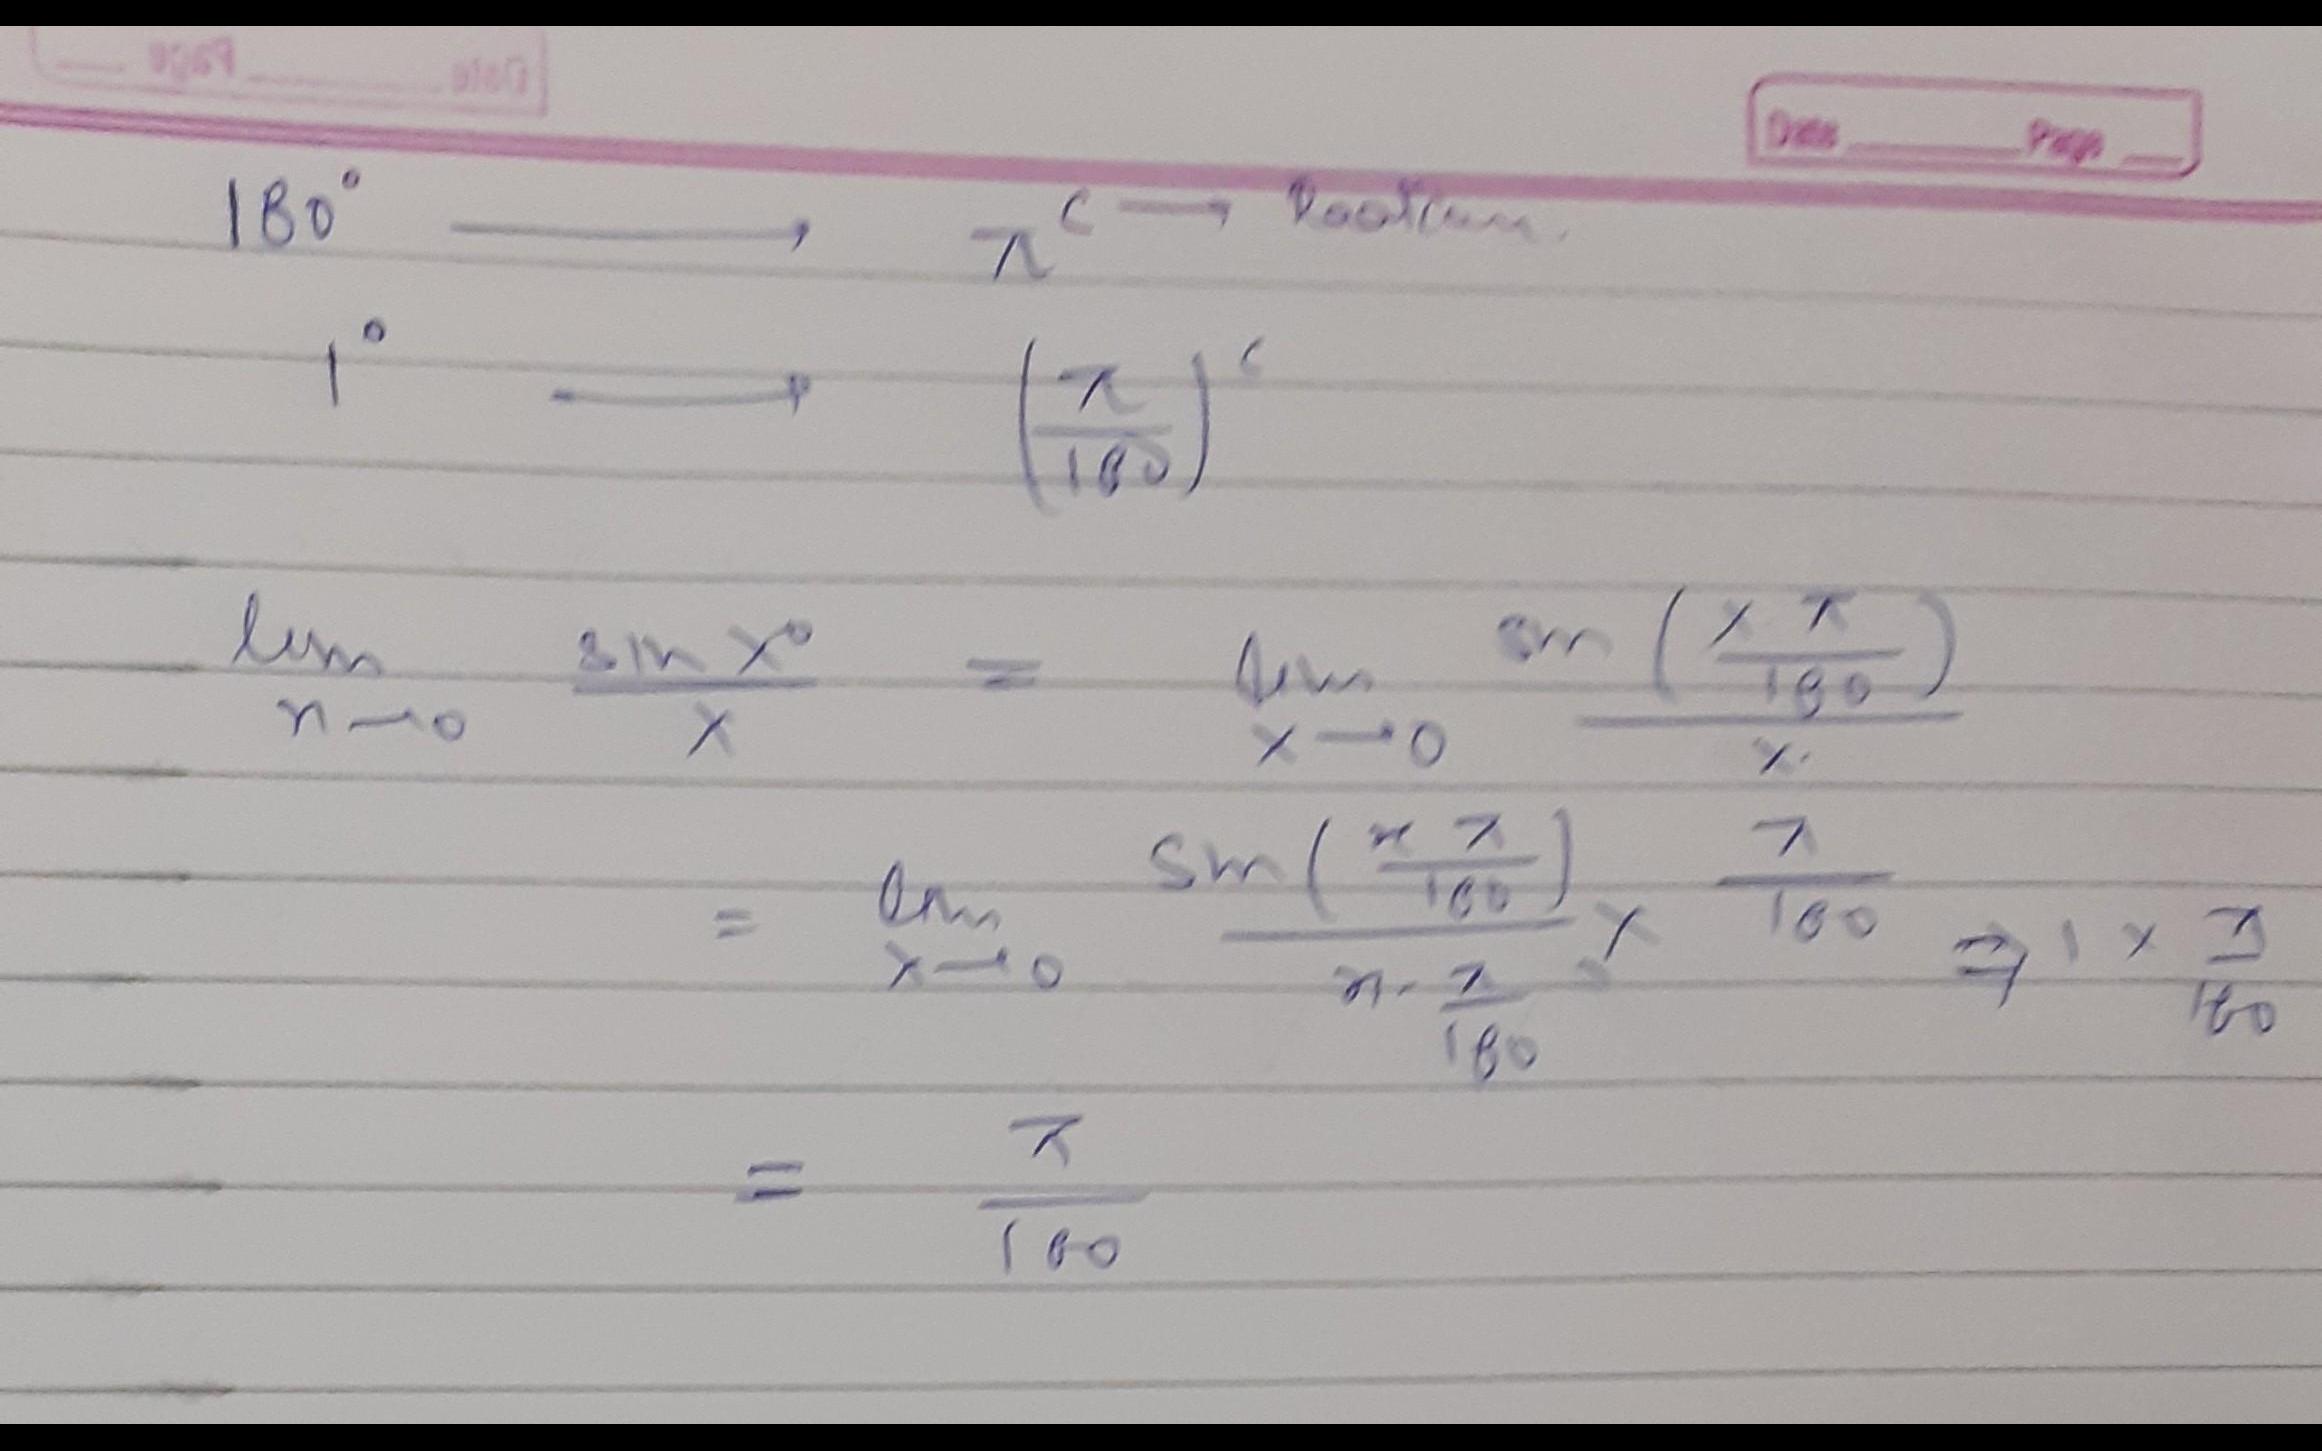 Date Page
180° → π^c → Radian.
1° → (π/180)^c
lim x→0 sin x°/x = lim x→0 sin(x π/180)/x.
= lim x→0 sin(x π/180)/(x. π/180) × π/180 ⇒ 1 × π/180
= π/180